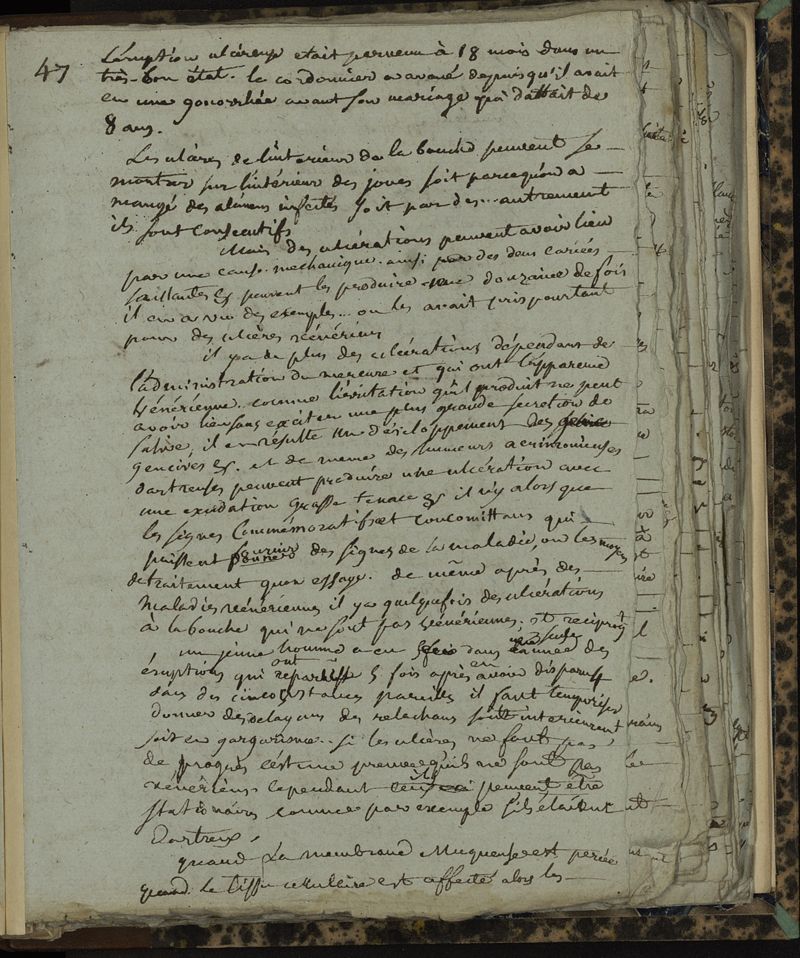 47
L'éruption ulcéreuse etait parvenu à 18 mois dans un
très-bon état. le cordonnier a avoué depuis qu'il avait
eu une gonorrhée avant son mariage qui datait de
8 ans.
Les ulcères de l'interieur de la bouche peuvent se
montrer sur l'intérieur des joues soit parcequ'on a
mangé des alimens infectés soit par des... autrement
ils sont consecutifs
Mais des ulcérations peuvent avoir lieu
par une cause mechanique. ainsi par des dens cariées
saillantes &c peuvent les produire une douzaine de fois
il en a vu des exemples... on les avait pris pourtant
pour des ulcères vénériens
il y a de plus des ulcérations dépendant de
l'administration du mercure et qui ont l'apparence
vénérienne. comme l'irritation qu'il produit ne peut
avoir lieu sans exciter une plus grande secretion de
salive, il en résulte un développement des
gencives &c. et de meme des humeurs acrimonieuses
dartreuses peuvent produire une ulcération avec
une exudation grasse tenace &c il n'y a alors que
les signes Commémoratifs et concomittans qui
puissent fournir des signes de la maladie, ou les moyens
de traitement qu'on essaye. de même après des
maladies vénériennes il y a quelquefois des ulcérations
à la bouche qui ne sont pas vénériennes. et reciproq^t
un jeune homme a eu dans l'année des
éruptions qui ont reparu 5 fois après en avoir disparu
dans des circonstances pareilles il faut temporiser
donner des delayans des relachans soit interieurement
soit en gargarisme.. si les ulcères ne font pas
de progrès c'est une preuve qu'ils ne sont pas
vénériens cependant ils peuvent être
stationnaires comme par exemple s'ils étaient
Dartreux.
quand La membrane Muqueuse est percée
quand le tissu cellullaire est affecté alors les